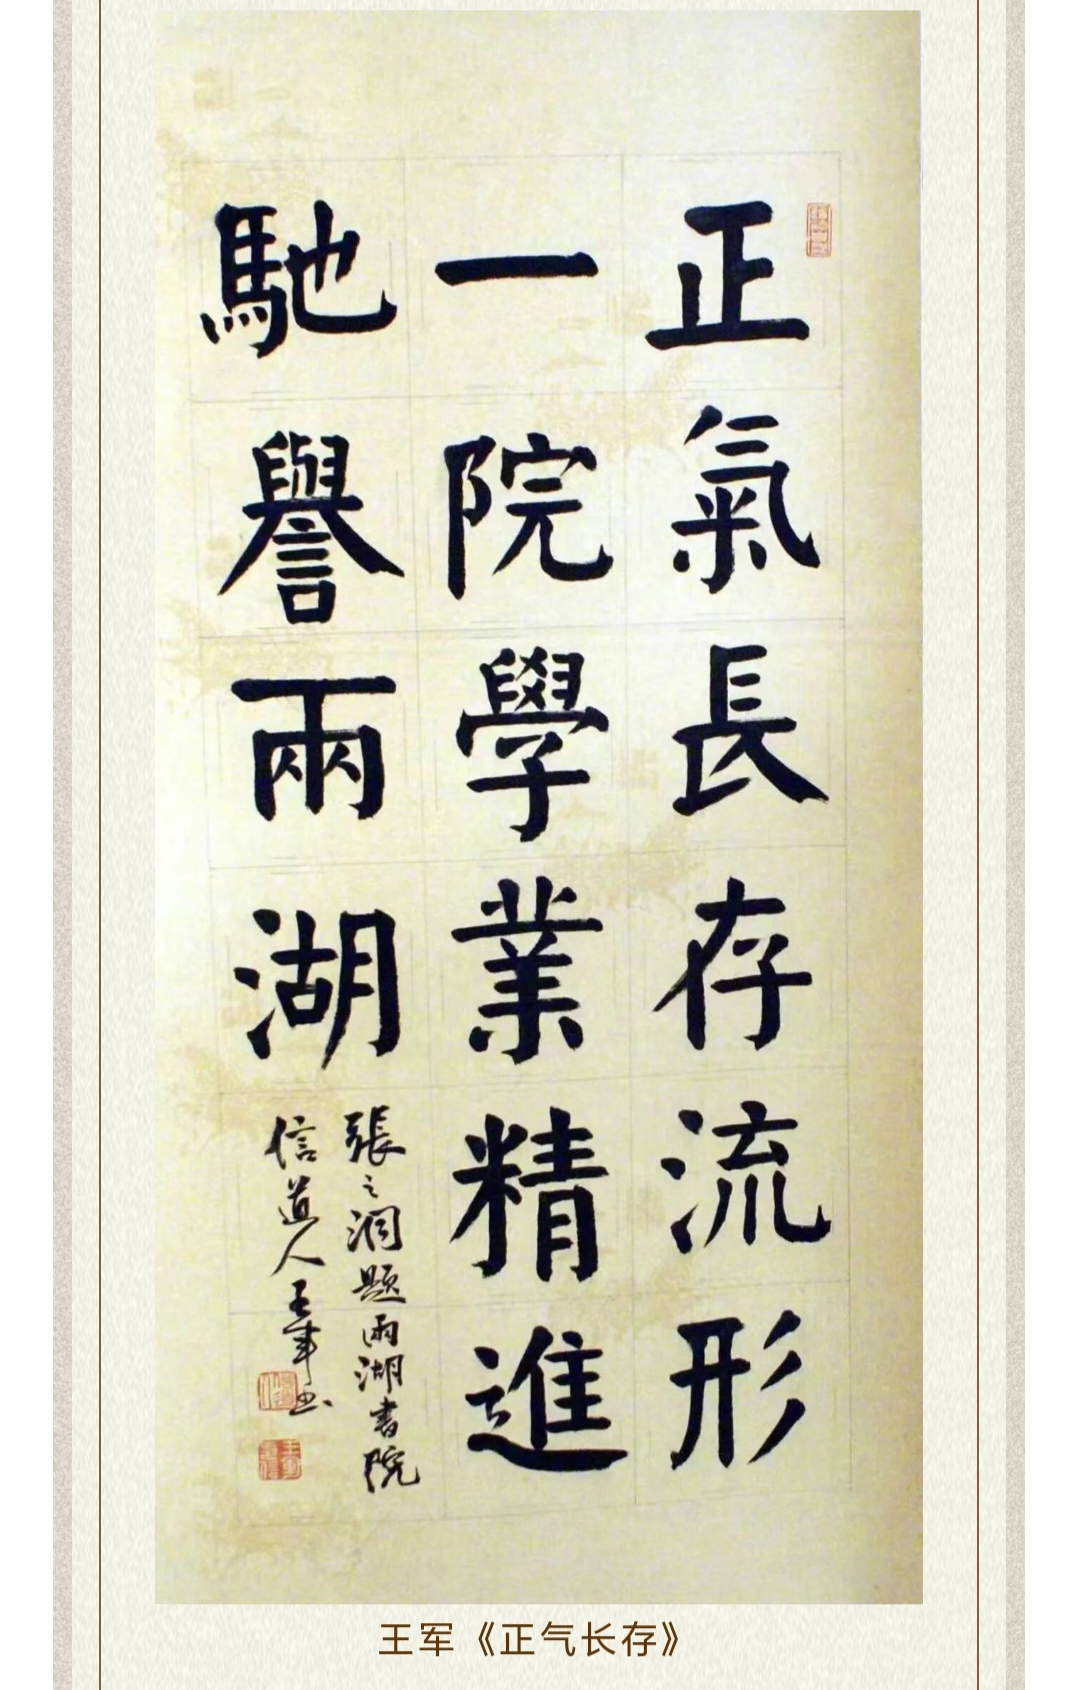 正氣長存流形
一院學業精進
馳譽兩湖
張之洞題兩湖書院
信道人王軍书
王军《正气长存》